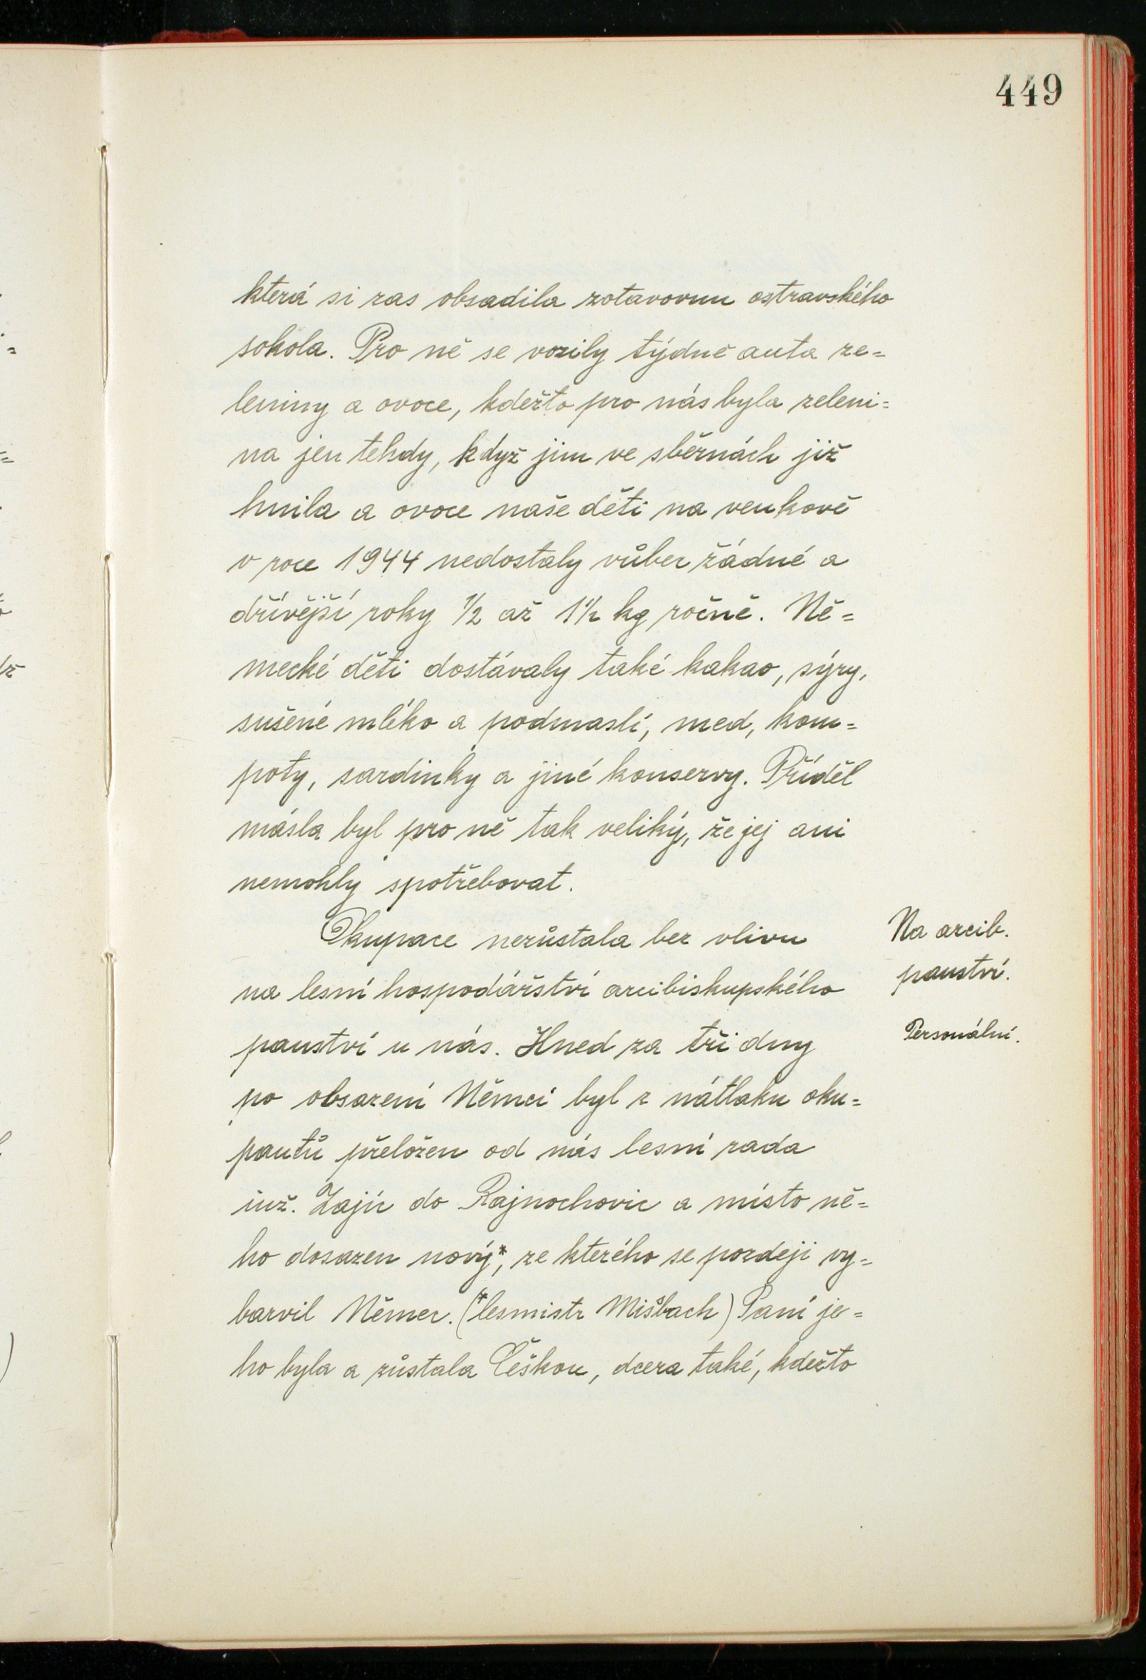 449
která si zas obsadila zotavovnu ostravského
sokola. Pro ně se vozily týdně auta ze=
leniny a ovoce, kdežto pro nás byla zeleni=
na jen tehdy, když jim ve sběrnách již
hnila a ovoce naše děti na venkově
v roce 1944 nedostaly vůbec žádné a
dřívější roky 1/2 až 1 1/2 kg ročně. Ně=
mecké děti dostávaly také kakao, sýry,
sušené mléko a podmaslí, med, kom=
poty, sardinky a jiné konservy. Příděl
másla byl pro ně tak veliký, že jej ani
nemohly spotřebovat.
Okupace nezůstala bez vlivu
na lesní hospodářství arcibiskupského
panství u nás. Hned za tři dny
po obsazení Němci byl z nátlaku oku=
pantů přeložen od nás lesní rada
inž. Zajíc do Rajnochovic a místo ně=
ho dosazen nový*, ze kterého se pozdeji vy=
barvil Němec. (*lesmistr Mišbach) Paní je=
ho byla a zůstala Češkou, dcera také, kdežto
Na arcib.
panství.
Personální.